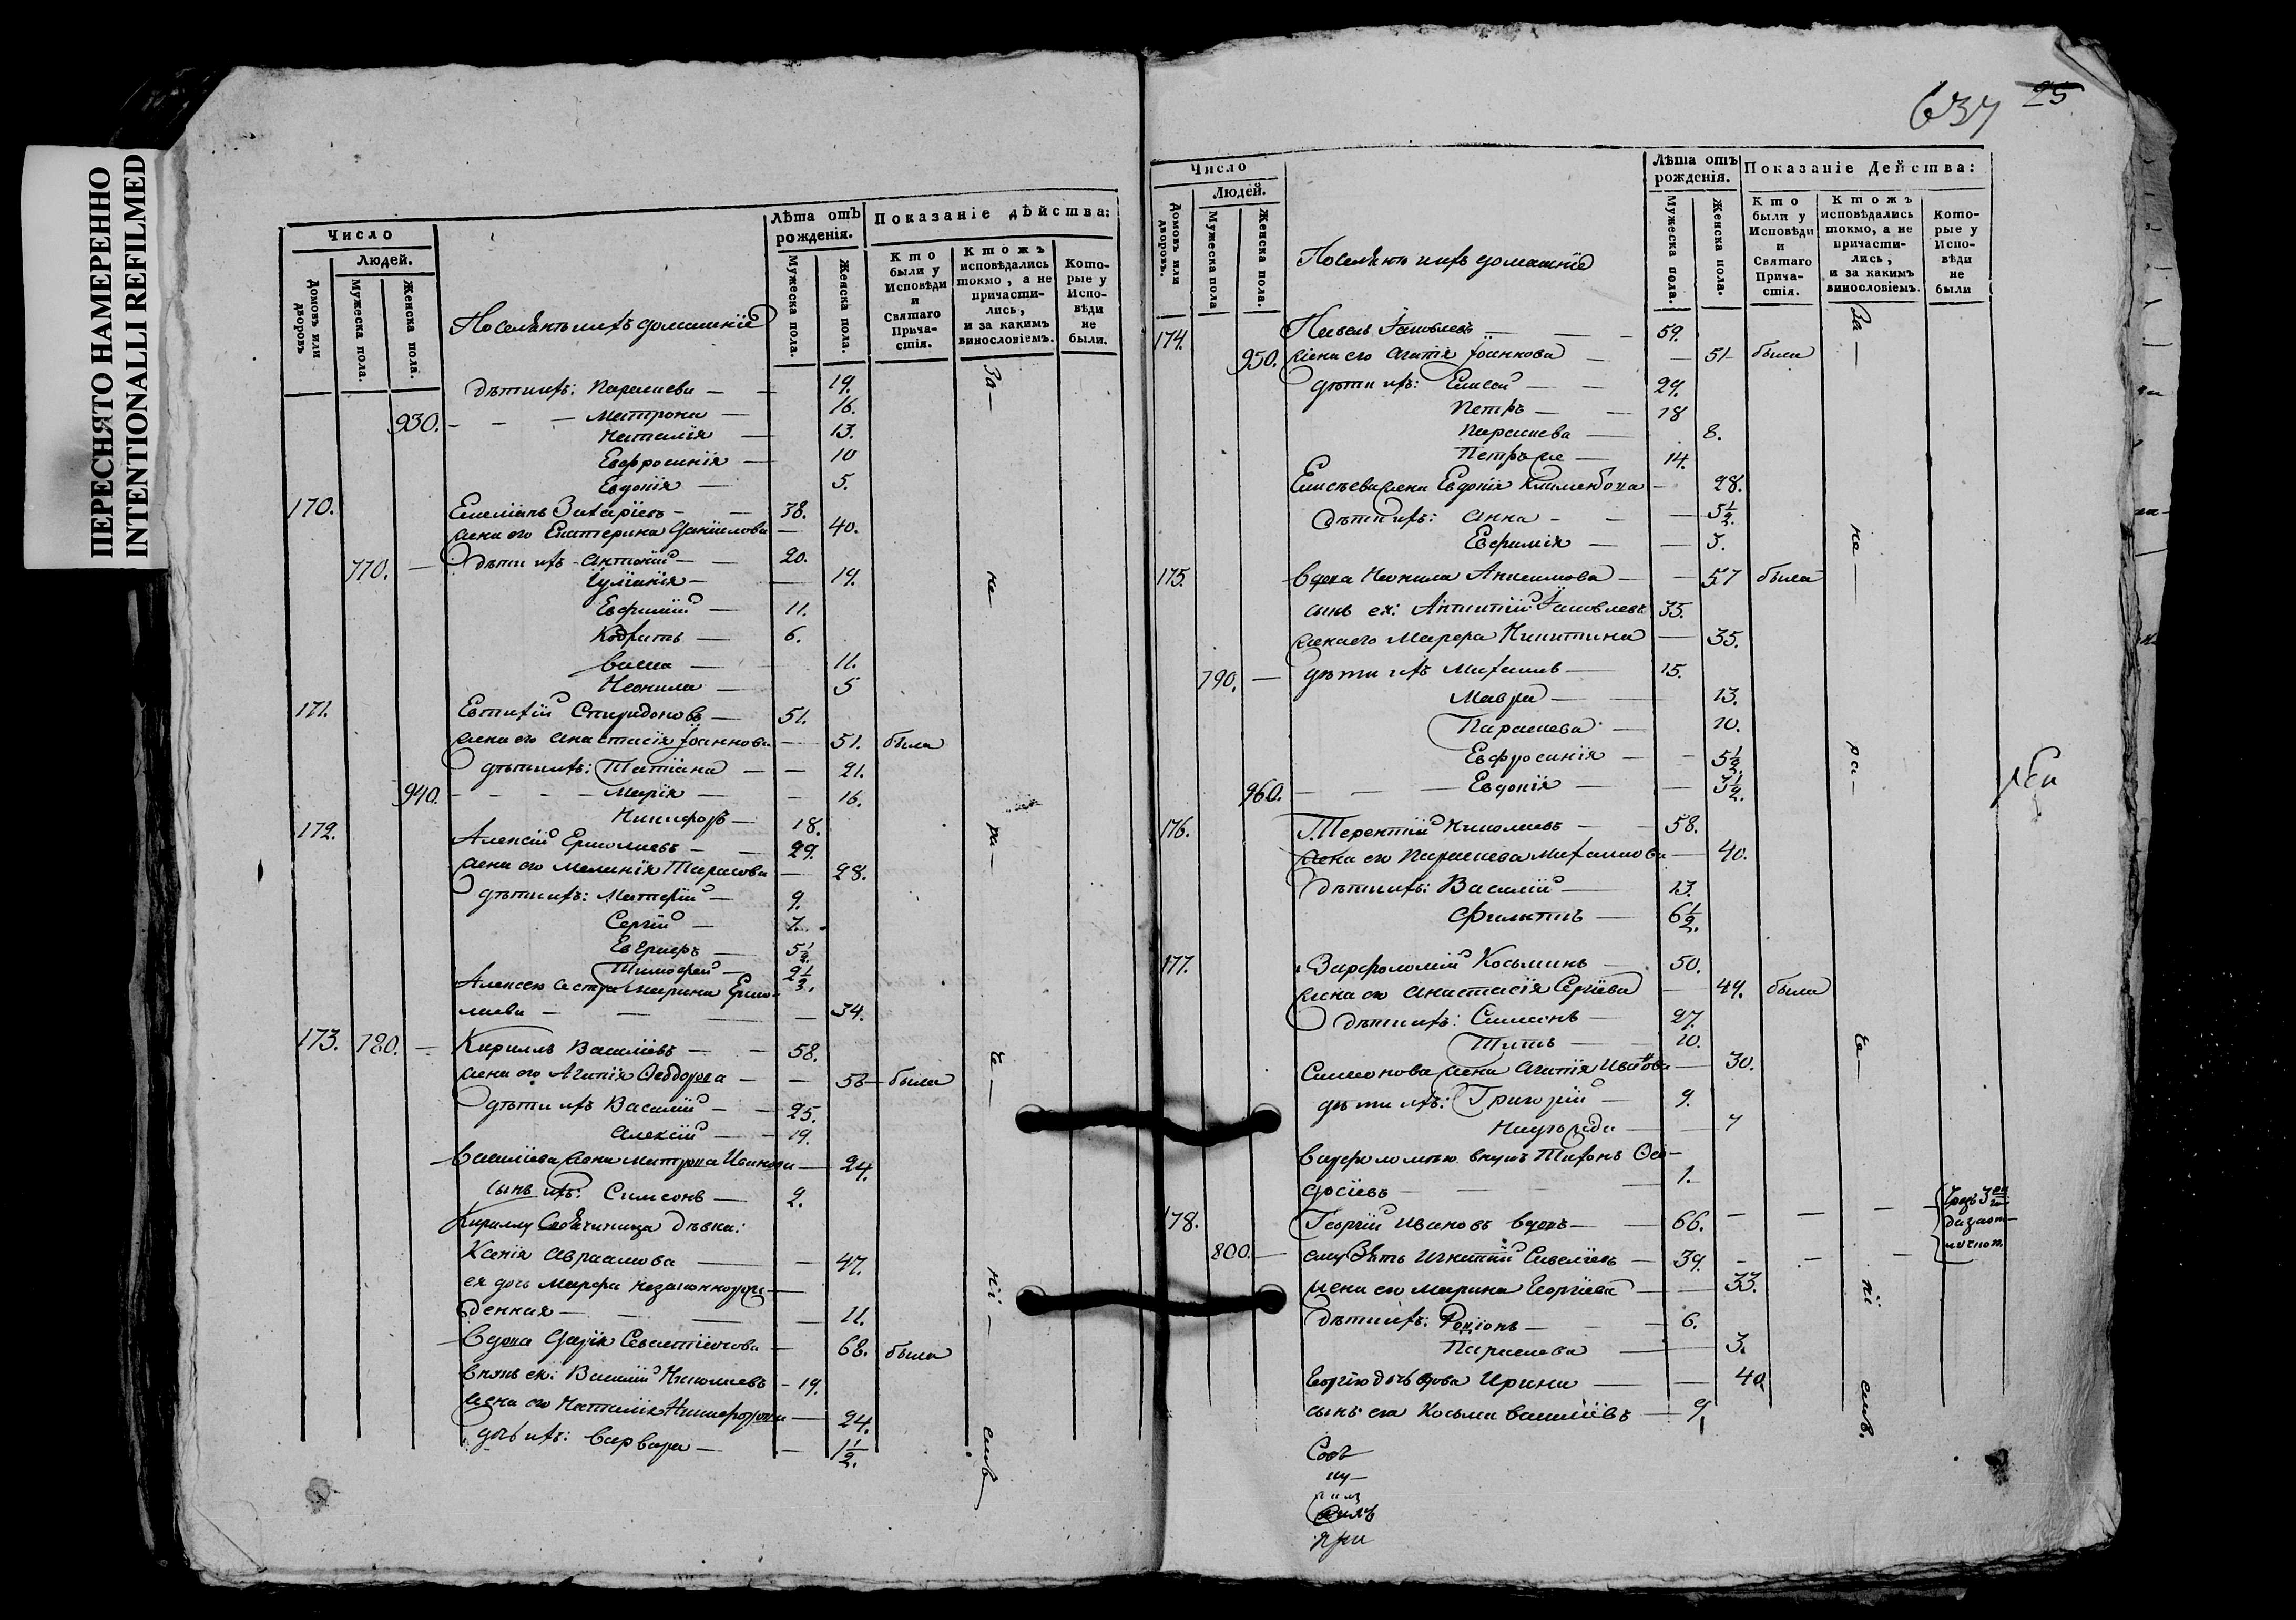 ПЕРЕСНЯТО НАМЕРЕННО
INTENTIONALLI REFILMED
Число
Людей.
Домовъ или дворовъ
Мужеска пола.
Женска пола.
Поселяне и ихъ домашніе
Лѣта отъ рожденія.
Мужеска пола.
Женска пола.
Показаніе дѣйства:
Кто были у Исповѣди и Святаго Прича-стія.
Ктожъ исповѣдались токмо, а не причасти-лись, и за какимъ винословіемъ.
Кото-рые у Испо-вѣди не были.
За — не — ра — че — ніі — емъ
дѣти ихъ: Параскева — 19.
930. - - - Матрона — 16.
Наталія — 13.
Евфросинія — 10
Евдокія — 5.
170. Емеліанъ Захаріевъ - 38.
жена его Екатерина Даніилова — 40.
770. — дѣти ихъ - Антоній — 20.
Іуліанія — 19.
Евфимій — 11.
Кодратъ — 6.
Васса — 11.
Неонила — 5
171. Евтихій Спиридоновъ — 51.
жена его Анастасія Іоаннова — 51. была
дѣти ихъ: Татіана — 21.
940. - - - - Марія — 16.
Никифоръ — 18.
172. Алексій Ермолаевъ - 29.
жена его Меланія Тарасова — 28.
дѣти ихъ: Матѳей — 9.
Сергій — 7.
Евграфъ — 5½.
Тимофей — 2½.
Алексею сестра Марина Ермо-
лаева — 34.
173. 780. — Кириллъ Василіевъ — 58.
жена его Агапія Ѳеодорова — 56 — была
дѣти ихъ Василій — 25.
Алексій — 19.
Василіева жена Матрона Иванова — 24.
сынъ ихъ: Симеонъ — 2.
Кириллу своячиница дѣвка:
Ксенія Авраамова — 47.
ея дочь Марфа незаконнорож-
денная — 11.
вдова Дарія Севастіянова — 68. была
внукъ ея: Василій Николаевъ - 19.
жена его Наталія Никифорова — 24.
дочь ихъ: Варвара — 1½.
637 25
Число
Людей.
Домовъ или дворовъ.
Мужеска пола
Женска пола.
Поселяне и ихъ домашніе
Лѣта отъ рожденія.
Мужеска пола.
Женска пола.
Показаніе Действа:
Кто были у Исповѣди и Святаго Прича-стія.
Ктожъ исповѣдались токмо, а не причасти-лись, и за какимъ винословіемъ.
Кото-рые у Испо-вѣди не были
За — не — ра — че — ніі емъ.
174. Павелъ Іаковлевъ — 59.
950. жена его Агапія Іоаннова — 51 была
дѣти ихъ: Елисей — 29.
Петръ — 18
Параскева — 8.
Петръ же — 14.
Елисѣева жена Евдокія Климентова — 28.
дѣти ихъ: Анна - 5½.
Евфимія — 3.
175. вдова Неонила Анисимова — 57 была
сынъ ея: Антипій Іаковлевъ 35.
жена его Марфа Никитина — 35.
790. — дѣти ихъ Михаилъ — 15.
Мавра — 13.
Параскева — 10.
Евфросинія — 5½
960. — — — Евдокія — 3½.
176. Терентій Николаевъ — 58.
жена его Параскева Михаилова — 40.
дѣти ихъ: Василій — 13.
Филиппъ — 6½.
177. Варфоломій Косьминъ — 50.
жена его Анастасія Сергіева — 49. была
дѣти ихъ: Симеонъ — 27.
Титъ — 10.
Симеонова жена Агапія Иванова — 30.
дѣти ихъ: Григорій — 9.
7
Варфоломѣю внукъ Тихонъ Ѳео-
досіевъ — 1.
178. Георгій Ивановъ вдовъ — 66. — — —
800. — ему зять Игнатій Савеліевъ — 39. - - -
жена его Марина Георгіева — 33.
дѣти ихъ: Родіонъ — 6.
Параскева — 3.
Георгію дочь вдова Ирина — 40.
сынъ ея Косьма Василіевъ — 9.
при